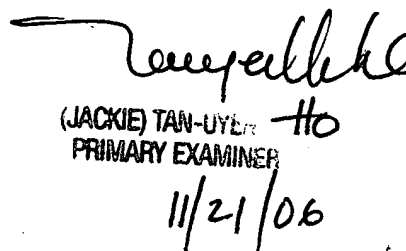 (JACKIE) TAN-UYEN HO
PRIMARY EXAMINER
11/21/06